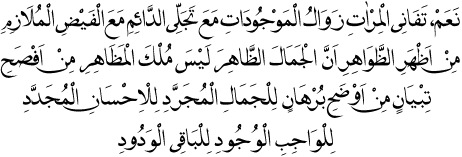 نَعَمْ، تَفَانِى الْمِرْاٰتِ زَوَالُ الْمَوْجُودَاتِ مَعَ تَجَلِّى الدَّائِمِ مَعَ الْفَيْضِ الْمُلَازِمِ
مِنْ اَظْهَرِ الظَّوَاهِرِ اَنَّ الْجَمَالَ الظَّاهِرَ لَيْسَ مُلْكَ الْمَظَاهِرِ مِنْ اَفْصَحِ
تِبْيَانٍ مِنْ اَوْضَحِ بُرْهَانٍ لِلْجَمَالِ الْمُجَرَّدِ لِلْاِحْسَانِ الْمُجَدَّدِ
لِلْوَاجِبِ الْوُجُودِ لِلْبَاقِى الْوَدُودِ